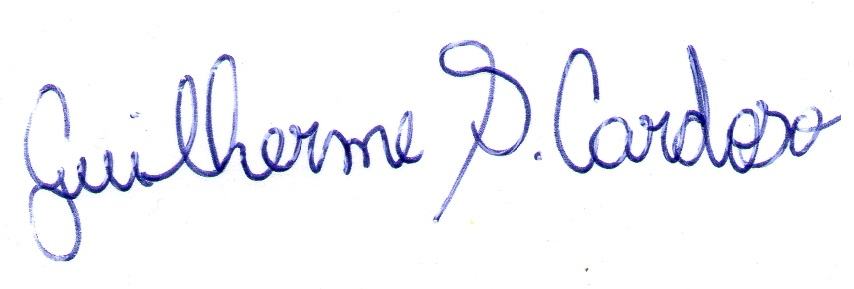 Guilherme S. Cardoso